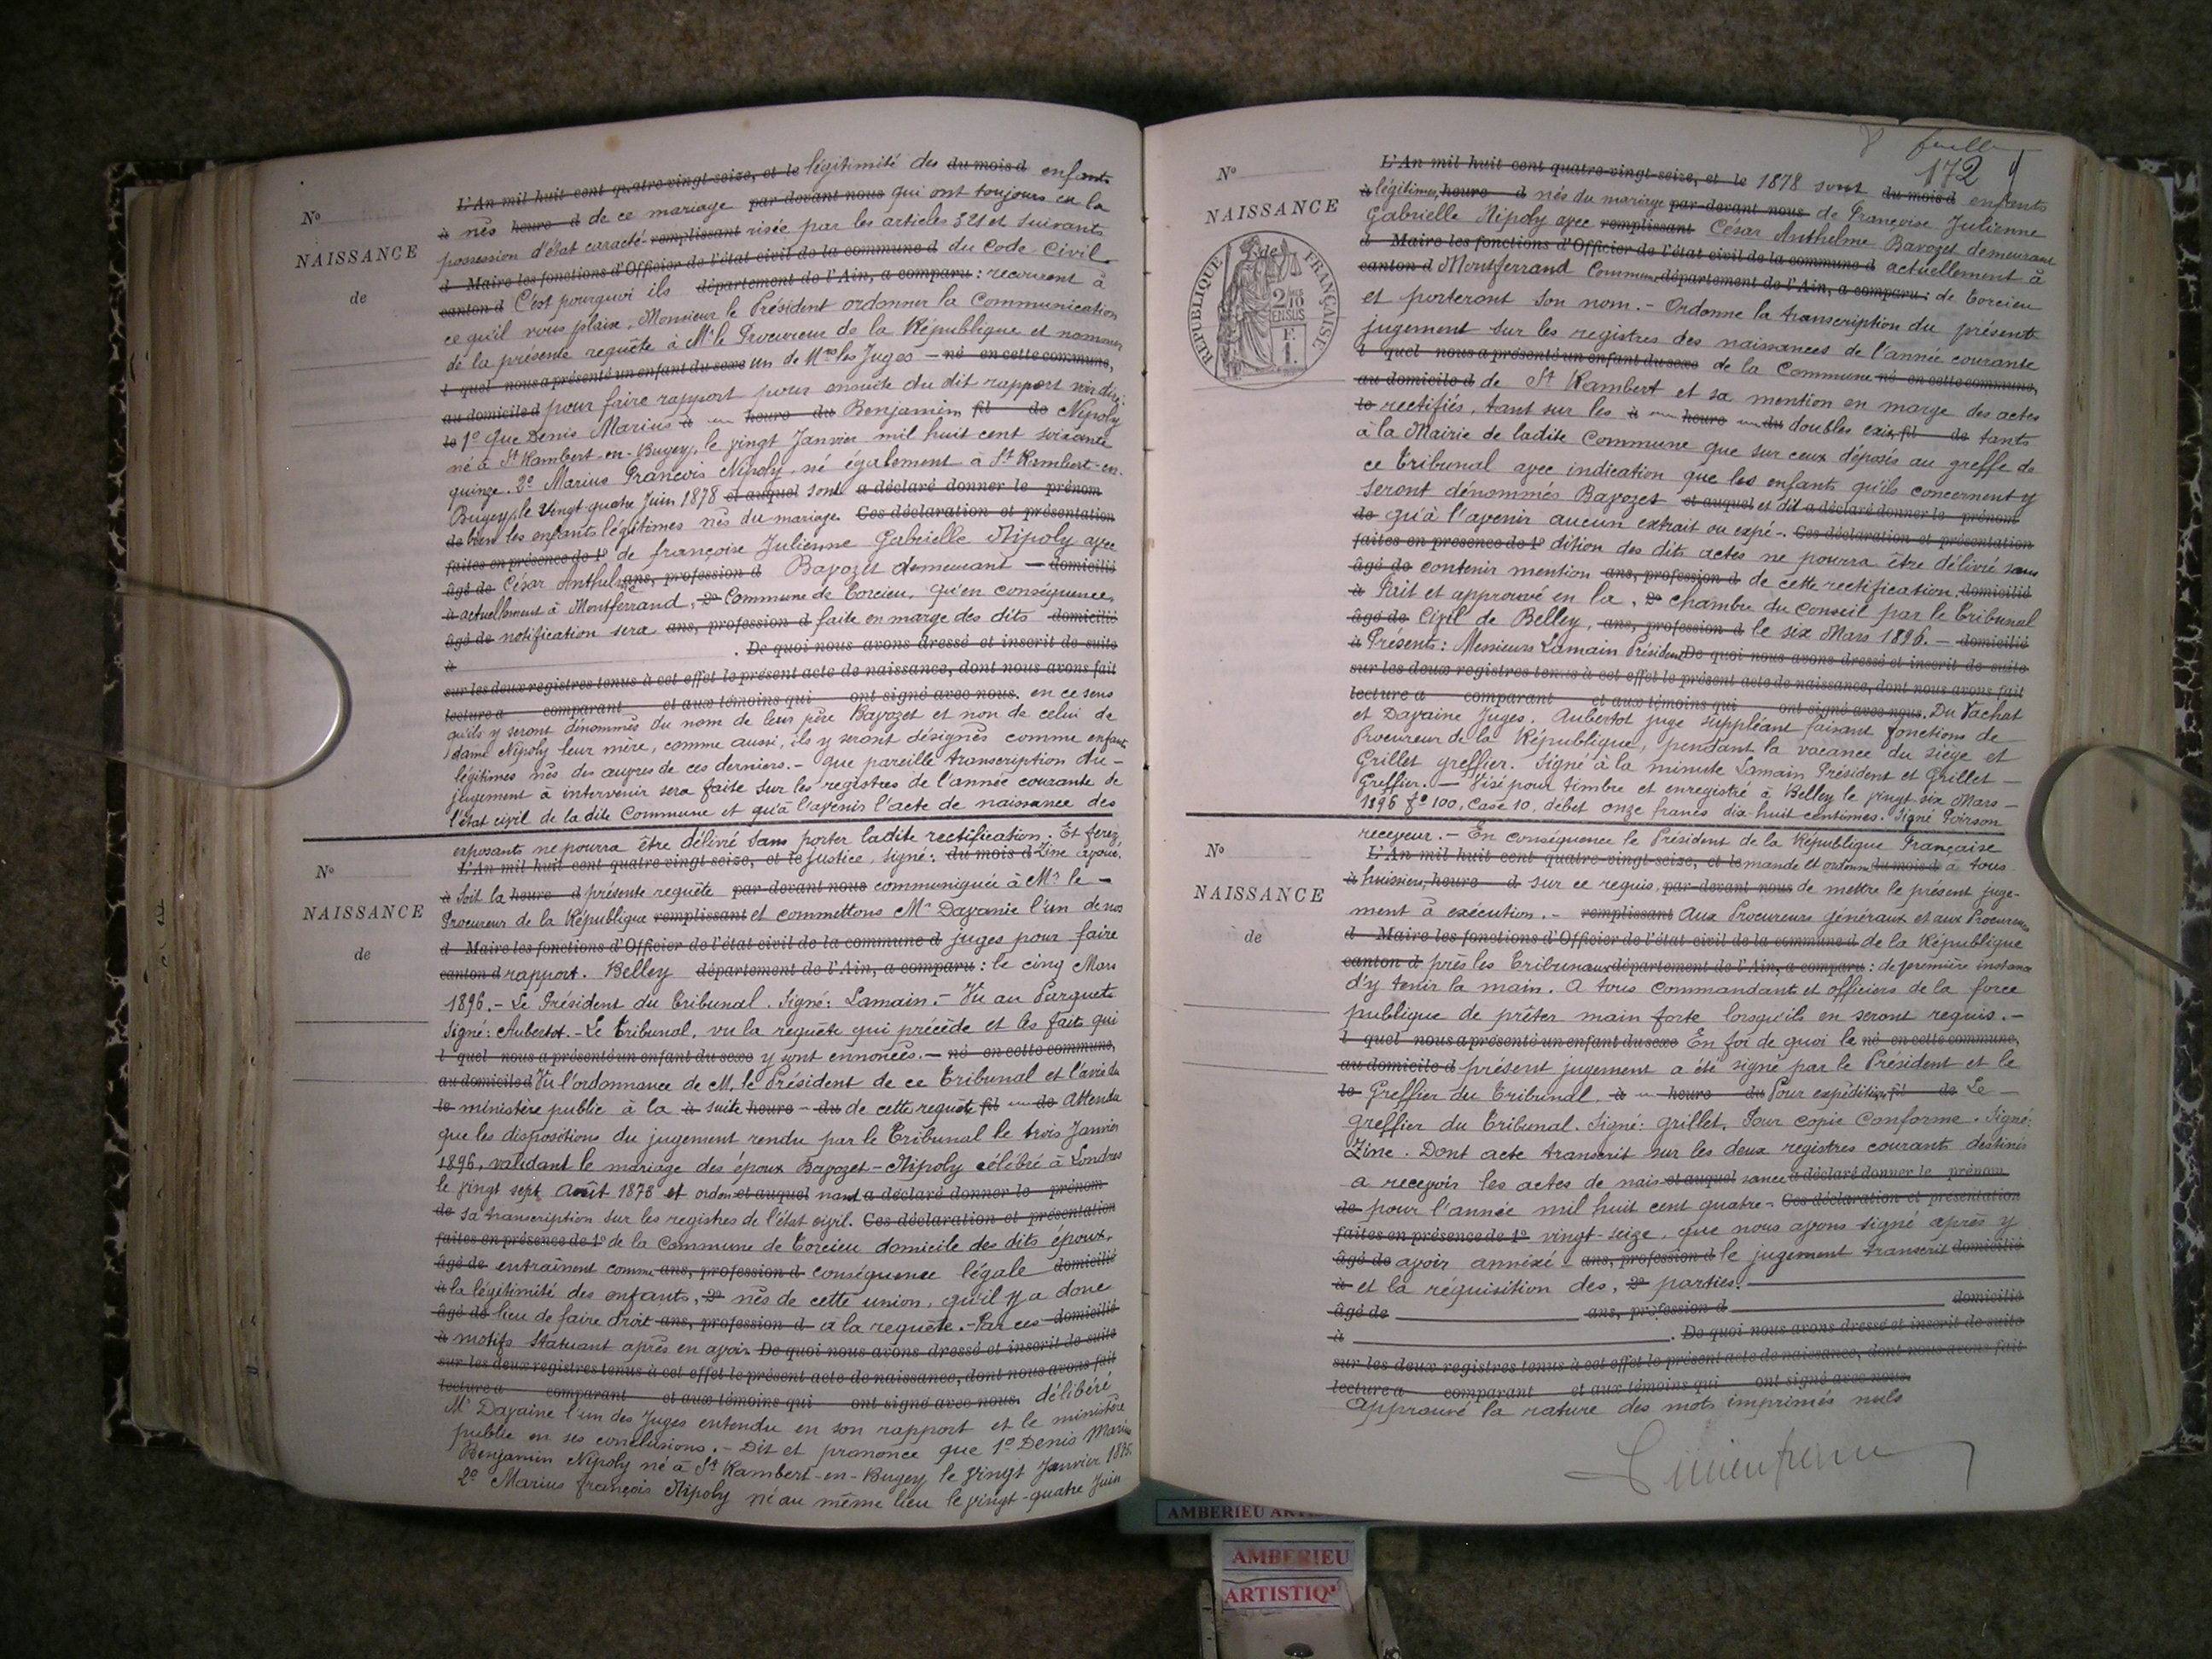 N°
NAISSANCE
de
L'An mil huit cent quatre-vingt-seize, et le légitimité des du mois d enfants
à nés heure d de ce mariage par-devant nous qui ont toujours eu la
possession d'état caracté- remplissant risée par les articles 321 et suivants
d Maire les fonctions d'Officier de l'état civil de la commune d du Code Civil
canton d C'est pourquoi ils département de l'Ain, a comparu : recourent à
ce qu'il vous plaise, Monsieur le Président ordonner la Communication
de la présente requête à Mr le Procureur de la République et nommer
l quel nous a présenté un enfant du sexe un de Mrs les Juges — né en cette commune,
au domicile d pour faire rapport pour ensuite du dit rapport voir dire:
le 1° Que Denis Marius à heure du Benjamin fil de Nipoly
né à St Rambert-en-Bugey, le vingt Janvier mil huit cent soixante
quinze. 2° Marius François Nipoly, né également à St Rambert-en-
Bugey, le vingt quatre Juin 1878 et auquel sont a déclaré donner le prénom
de bien les enfants légitimes nés du mariage Ces déclaration et présentation
faites en présence de 1° de françoise Julienne Gabrielle Nipoly avec
âgé de César Anthelme ans, profession d Bavozet demeurant — domicilié
à actuellement à Montferrand, 2° Commune de Torcieu, qu'en conséquence,
âgé de notification sera ans, profession d faite en marge des dits domicilié
à . De quoi nous avons dressé et inscrit de suite
sur les deux registres tenus à cet effet le présent acte de naissance, dont nous avons fait
lecture a comparant et aux témoins qui ont signé avec nous. en ce sens
qu'ils y seront dénommés du nom de leur père Bavozet et non de celui de
dame Nipoly leur mère, comme aussi, ils y seront désignés comme enfants
légitimes nés des œuvres de ces derniers. - Que pareille transcription du -
jugement à intervenir sera faite sur les registres de l'année courante de
l'état civil de la dite Commune et qu'à l'avenir l'acte de naissance des
exposants ne pourra être délivré sans porter ladite rectification. Et ferez
N°
NAISSANCE
de
L'An mil huit cent quatre-vingt-seize, et le justice, signé: du mois d Zine avoué.
à Soit la heure d présente requête par-devant nous communiquée à Mr le —
Procureur de la République remplissant et commettons Mr Davanie l'un de nos
d Maire les fonctions d'Officier de l'état civil de la commune d juges pour faire
canton d rapport. Belley département de l'Ain, a comparu : le cinq Mars
1896. - Le Président du Tribunal. Signé: Lamain. - Vu au Parquet
Signé: Aubertot. - Le Tribunal, vu la requête qui précède et les faits qui
l quel nous a présenté un enfant du sexe y sont ennoncés. — né en cette commune,
au domicile d Vu l'ordonnance de M. le Président de ce Tribunal et l'avis du
le ministère public à la à suite heure du de cette requête fil de Attendu
que les dispositions du jugement rendu par le Tribunal le trois Janvier
1896, validant le mariage des époux Bavozet-Nipoly célébré à Londres
le vingt sept Août 1878 et ordon et auquel nant a déclaré donner le prénom
de sa transcription sur les registres de l'état civil. Ces déclaration et présentation
faites en présence de 1° de la Commune de Torcieu domicile des dits époux,
âgé de entraînent comme ans, profession d conséquence légale domicilié
à la légitimité des enfants, 2° nés de cette union, qu'il y a donc
âgé de lieu de faire droit ans, profession d à la requête. - Par ces domicilié
à motifs Statuant après en avoir De quoi nous avons dressé et inscrit de suite
sur les deux registres tenus à cet effet le présent acte de naissance, dont nous avons fait
lecture a comparant et aux témoins qui ont signé avec nous. délibéré
Mr Davaine l'un des Juges entendu en son rapport et le ministère
public en ses conclusions. - Dit et prononce que 1° Denis Marius
Benjamin Nipoly né à St Rambert-en-Bugey le vingt Janvier 1875.
2° Marius françois Nipoly né au même lieu le vingt-quatre Juin
feuille
172
N°
NAISSANCE
de
RÉPUBLIQUE FRANÇAISE
L'An mil huit cent quatre-vingt-seize, et le 1878 sont du mois d enfants
à légitimes, heure d nés du mariage par-devant nous de Françoise Julienne
Gabrielle Nipoly avec remplissant César Anthelme Bavozet demeurant
d Maire les fonctions d'Officier de l'état civil de la commune d actuellement à
canton d Montferrand Commune département de l'Ain, a comparu : de Torcieu
et porteront son nom. - Ordonne la transcription du présent
jugement sur les registres des naissances de l'année courante
l quel nous a présenté un enfant du sexe de la Commune né en cette commune,
au domicile d de St Rambert et sa mention en marge des actes
le rectifiés, tant sur les à heure du doubles exis fil de tants
à la Mairie de ladite Commune que sur ceux déposés au greffe de
ce Tribunal avec indication que les enfants qu'ils concernent y
seront dénommés Bavozet et auquel et dit a déclaré donner le prénom
de qu'à l'avenir aucun extrait ou expé- Ces déclaration et présentation
faites en présence de 1° dition des dits actes ne pourra être délivré sans
âgé de contenir mention ans, profession d de cette rectification. domicilié
à Fait et approuvé en la, 2° chambre du Conseil par le Tribunal
âgé de Civil de Belley, ans, profession d le six Mars 1896. — domicilié
à Présents: Messieurs Lamain Président De quoi nous avons dressé et inscrit de suite
sur les deux registres tenus à cet effet le présent acte de naissance, dont nous avons fait
lecture a comparant et aux témoins qui ont signé avec nous. Du Vachat
et Davaine Juges. Aubertot juge suppléant faisant fonctions de
Procureur de la République, pendant la vacance du siège et
Grillet greffier. Signé à la minute Lamain Président et Grillet —
Greffier. — Visé pour timbre et enregistré à Belley le vingt six Mars —
1896 f° 100, Case 10, débet onze francs dix huit centimes. Signé Poirson
receveur. - En conséquence le Président de la République Française
N°
NAISSANCE
de
L'An mil huit cent quatre-vingt-seize, et le mande et ordonne du mois d à tous
à huissiers, heure d sur ce requis, par-devant nous de mettre le présent juge-
ment à exécution. - remplissant Aux Procureurs Généraux et aux Procureurs
d Maire les fonctions d'Officier de l'état civil de la commune d de la République
canton d près les Tribunaux département de l'Ain, a comparu : de première instance
d'y tenir la main. A tous Commandants et officiers de la force
publique de prêter main forte lorsqu'ils en seront requis. -
l quel nous a présenté un enfant du sexe En foi de quoi le né en cette commune,
au domicile d présent jugement a été signé par le Président et le
le Greffier du Tribunal. à heure du Pour expédition fil de Le —
greffier du Tribunal. Signé: grillet. Pour copie Conforme. Signé:
Zine. Dont acte transcrit sur les deux registres courants destinés
a recevoir les actes de nais et auquel sance a déclaré donner le prénom
de pour l'année mil huit cent quatre- Ces déclaration et présentation
faites en présence de 1° vingt-seize, que nous avons signé après y
âgé de avoir annexé ans, profession d le jugement transcrit domicilié
à et la réquisition des, 2° parties.
âgé de ans, profession d domicilié
à . De quoi nous avons dressé et inscrit de suite
sur les deux registres tenus à cet effet le présent acte de naissance, dont nous avons fait
lecture a comparant et aux témoins qui ont signé avec nous.
Approuvé la rature des mots imprimés nuls
AMBERIEU
AMBERIEU
ARTISTIQ